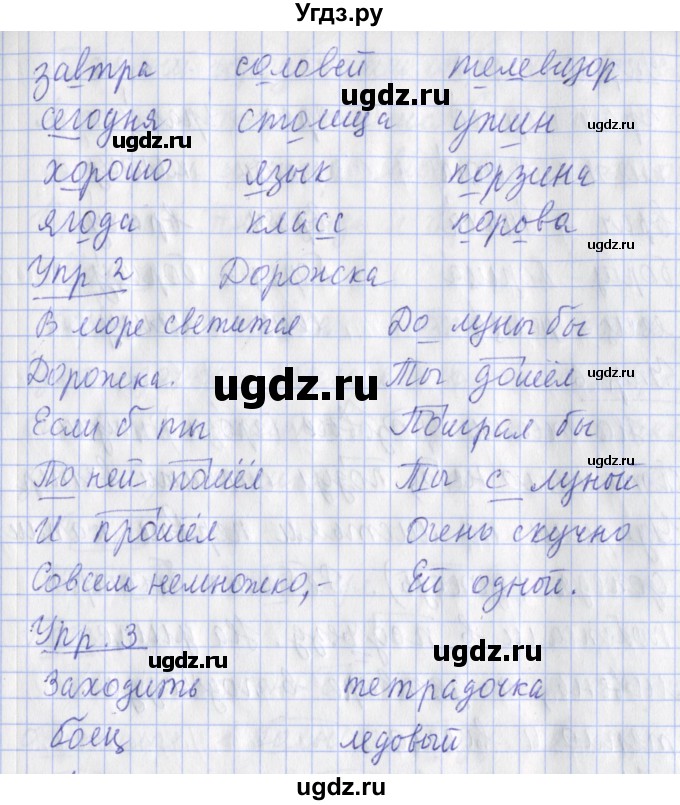 Угдз.ру
завтра соловей телевизор
ugdz.ru
сегодня столица ужин
ugdz.ru ugdz.ru
хорошо язык порзина
ягода класс корова
ugdz.ru
Упр 2 Дорожка
В море светится До луны бы
Дорожка. Ты дошёл
ugdz.ru ugdz.ru
Если б ты Поиграл бы
По ней пошёл Ты с луной
ugdz.ru
И прошёл Очень скучно
Совсем немножко,- Ей одной.
Упр. 3
ugdz.ru ugdz.ru
Заходить тетрадочка
боец ледовый
ugdz.ru